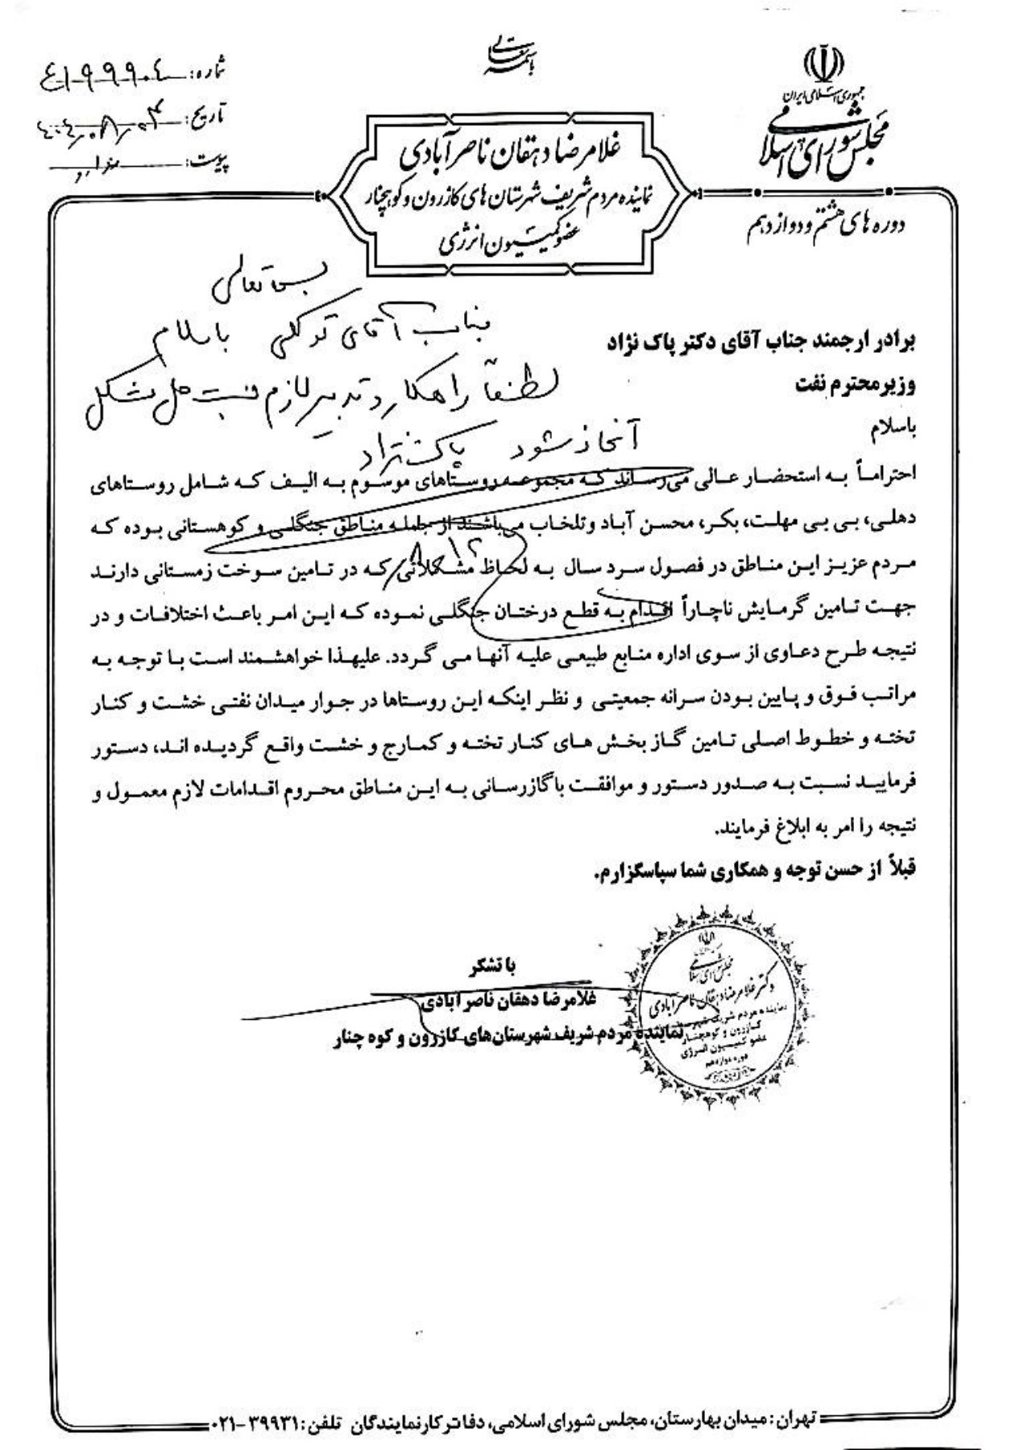 باسمه تعالی
جمهوری اسلامی ایران
مجلس شورای اسلامی
دوره های هشتم و دوازدهم
غلامرضا دهقان ناصرآبادی
نماینده مردم شریف شهرستان های کازرون و کوهچنار
عضو کمیسیون انرژی
شماره:
تاریخ:
پیوست: ندارد
بسمه تعالی
جناب آقای توکلی باسلام
لطفاً راهکار و تدبیر لازم نسبت حل مشکل
اتخاذ شود پاک نژاد
برادر ارجمند جناب آقای دکتر پاک نژاد
وزیر محترم نفت
باسلام
احتراماً به استحضار عالی می‌رساند که مجموعه روستاهای موسوم به الیف که شامل روستاهای
دهلی، بی بی مهلت، بکر، محسن آباد وتلخاب می‌باشند از جمله مناطق جنگلی و کوهستانی بوده که
مردم عزیز این مناطق در فصول سرد سال به لحاظ مشکلاتی که در تامین سوخت زمستانی دارند
جهت تامین گرمایش ناچاراً اقدام به قطع درختان جنگلی نموده که این امر باعث اختلافات و در
نتیجه طرح دعاوی از سوی اداره منابع طبیعی علیه آنها می گردد. علیهذا خواهشمند است با توجه به
مراتب فوق و پایین بودن سرانه جمعیتی و نظر اینکه این روستاها در جوار میدان نفتی خشت و کنار
تخته و خطوط اصلی تامین گاز بخش های کنار تخته و کمارج و خشت واقع گردیده اند، دستور
فرمایید نسبت به صدور دستور و موافقت باگازرسانی به این مناطق محروم اقدامات لازم معمول و
نتیجه را امر به ابلاغ فرمایند.
قبلاً از حسن توجه و همکاری شما سپاسگزارم.
با تشکر
غلامرضا دهقان ناصرآبادی
نماینده مردم شریف شهرستان‌های کازرون و کوه چنار
مجلس شورای اسلامی
دکتر غلامرضا دهقان ناصرآبادی
نماینده مردم شریف
کازرون و کوهچنار
عضو کمیسیون انرژی
دوره دوازدهم
تهران: میدان بهارستان، مجلس شورای اسلامی، دفاتر کار نمایندگان تلفن: ۳۹۹۳۱-۰۲۱